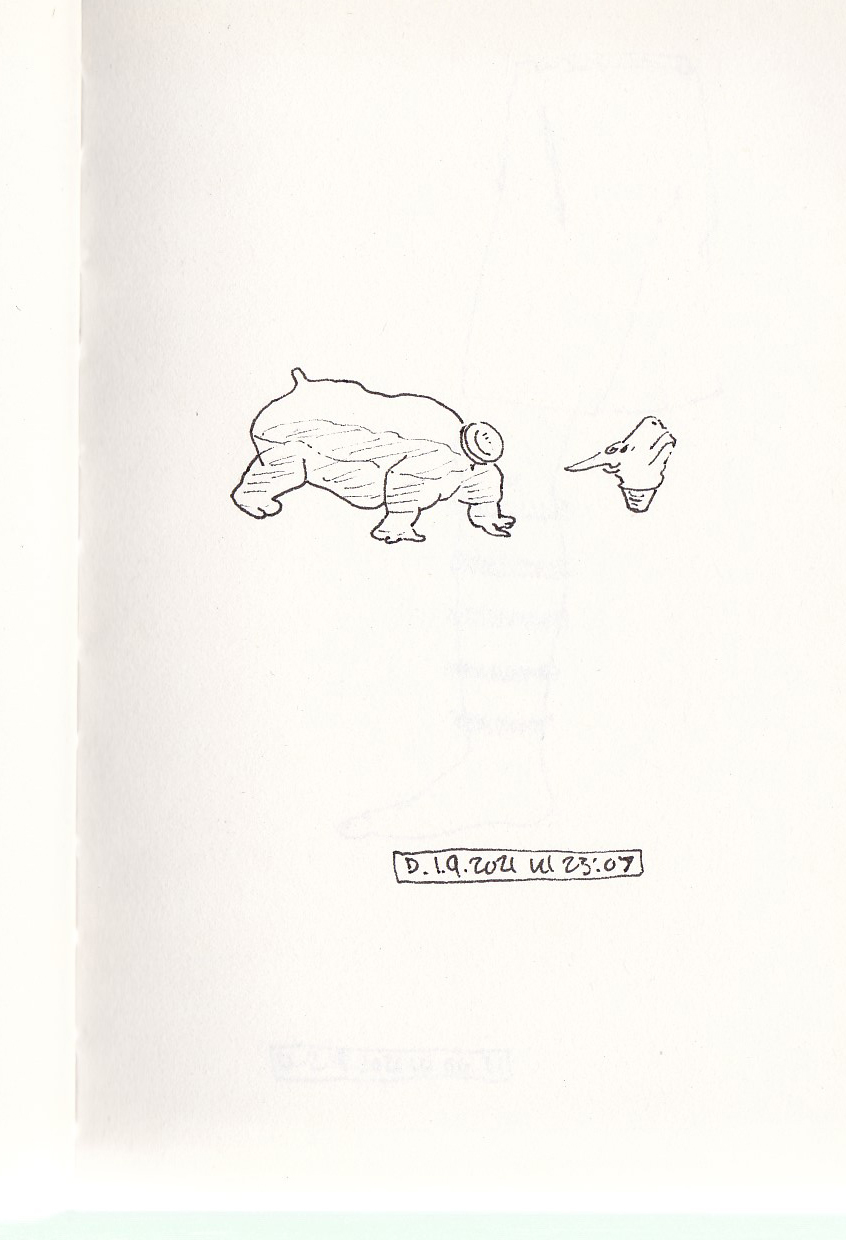 D. 1.9.2021 kl 23:07